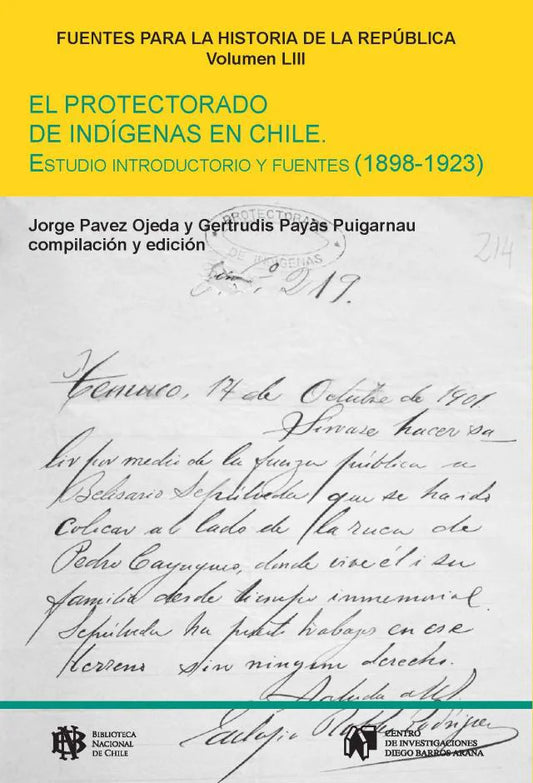 FUENTES PARA LA HISTORIA DE LA REPÚBLICA
Volumen LIII
EL PROTECTORADO
DE INDÍGENAS EN CHILE.
ESTUDIO INTRODUCTORIO Y FUENTES (1898-1923)
Jorge Pavez Ojeda y Gertrudis Payàs Puigarnau
compilación y edición
PROTECTORADO
DE INDÍGENAS
214
219.
Temuco, 17 de Octubre de 1901.
Sírvase hacer sa
lir por medio de la fuerza pública a
Belisario Sepúlveda que se ha ido
colocar al lado de la ruca de
Pedro Cayuqueo, donde vive él i su
familia desde tiempo inmemorial.
Sepúlveda ha puesto trabajos en ese
terreno sin ningun derecho.
Saluda a Ud.
BIBLIOTECA
NACIONAL
DE CHILE
CENTRO
DE INVESTIGACIONES
DIEGO BARROS ARANA